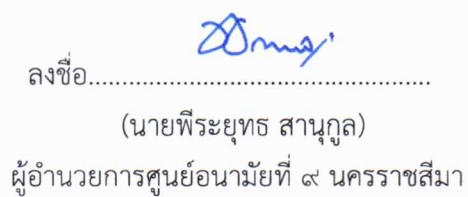 ลงชื่อ................................................
(นายพีระยุทธ สานุกูล)
ผู้อำนวยการศูนย์อนามัยที่ ๙ นครราชสีมา